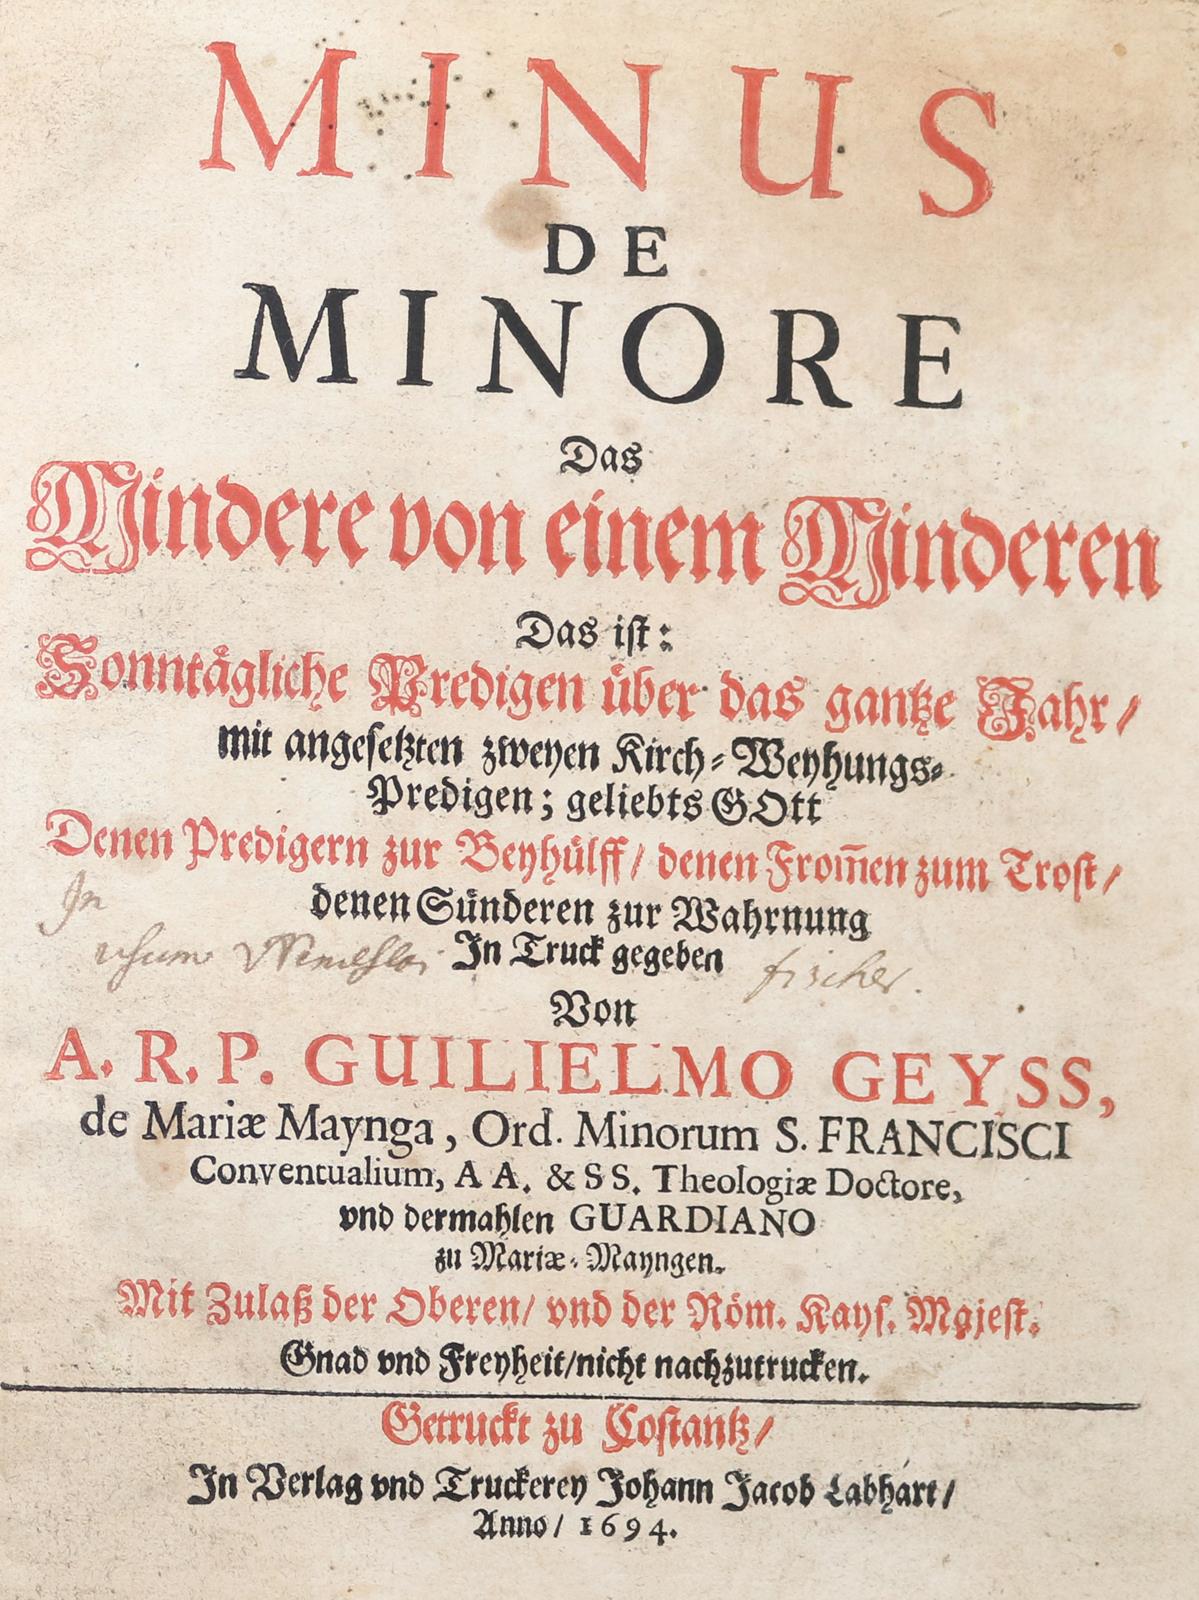 MINUS
DE
MINORE
Das
Mindere von einem Minderen
Das ist:
Sonntägliche Predigen über das gantze Jahr/
mit angesetzten zweyen Kirch-Weyhungs-
Predigen; geliebts GOtt
Denen Predigern zur Beyhülff/ denen From̄en zum Trost/
denen Sünderen zur Wahrnung
In
usum
In Truck gegeben
fischer.
Von
A. R. P. GUILIELMO GEYSS,
de Mariæ Maynga, Ord. Minorum S. FRANCISCI
Conventualium, A A. & S S. Theologiæ Doctore,
vnd dermahlen GUARDIANO
zu Mariæ-Mayngen.
Mit Zulaß der Oberen/ vnd der Röm. Kays. Majest.
Gnad vnd Freyheit/nicht nachzutrucken.
Getruckt zu Costantz/
In Verlag vnd Truckerey Johann Jacob Labhart/
Anno/ 1694.